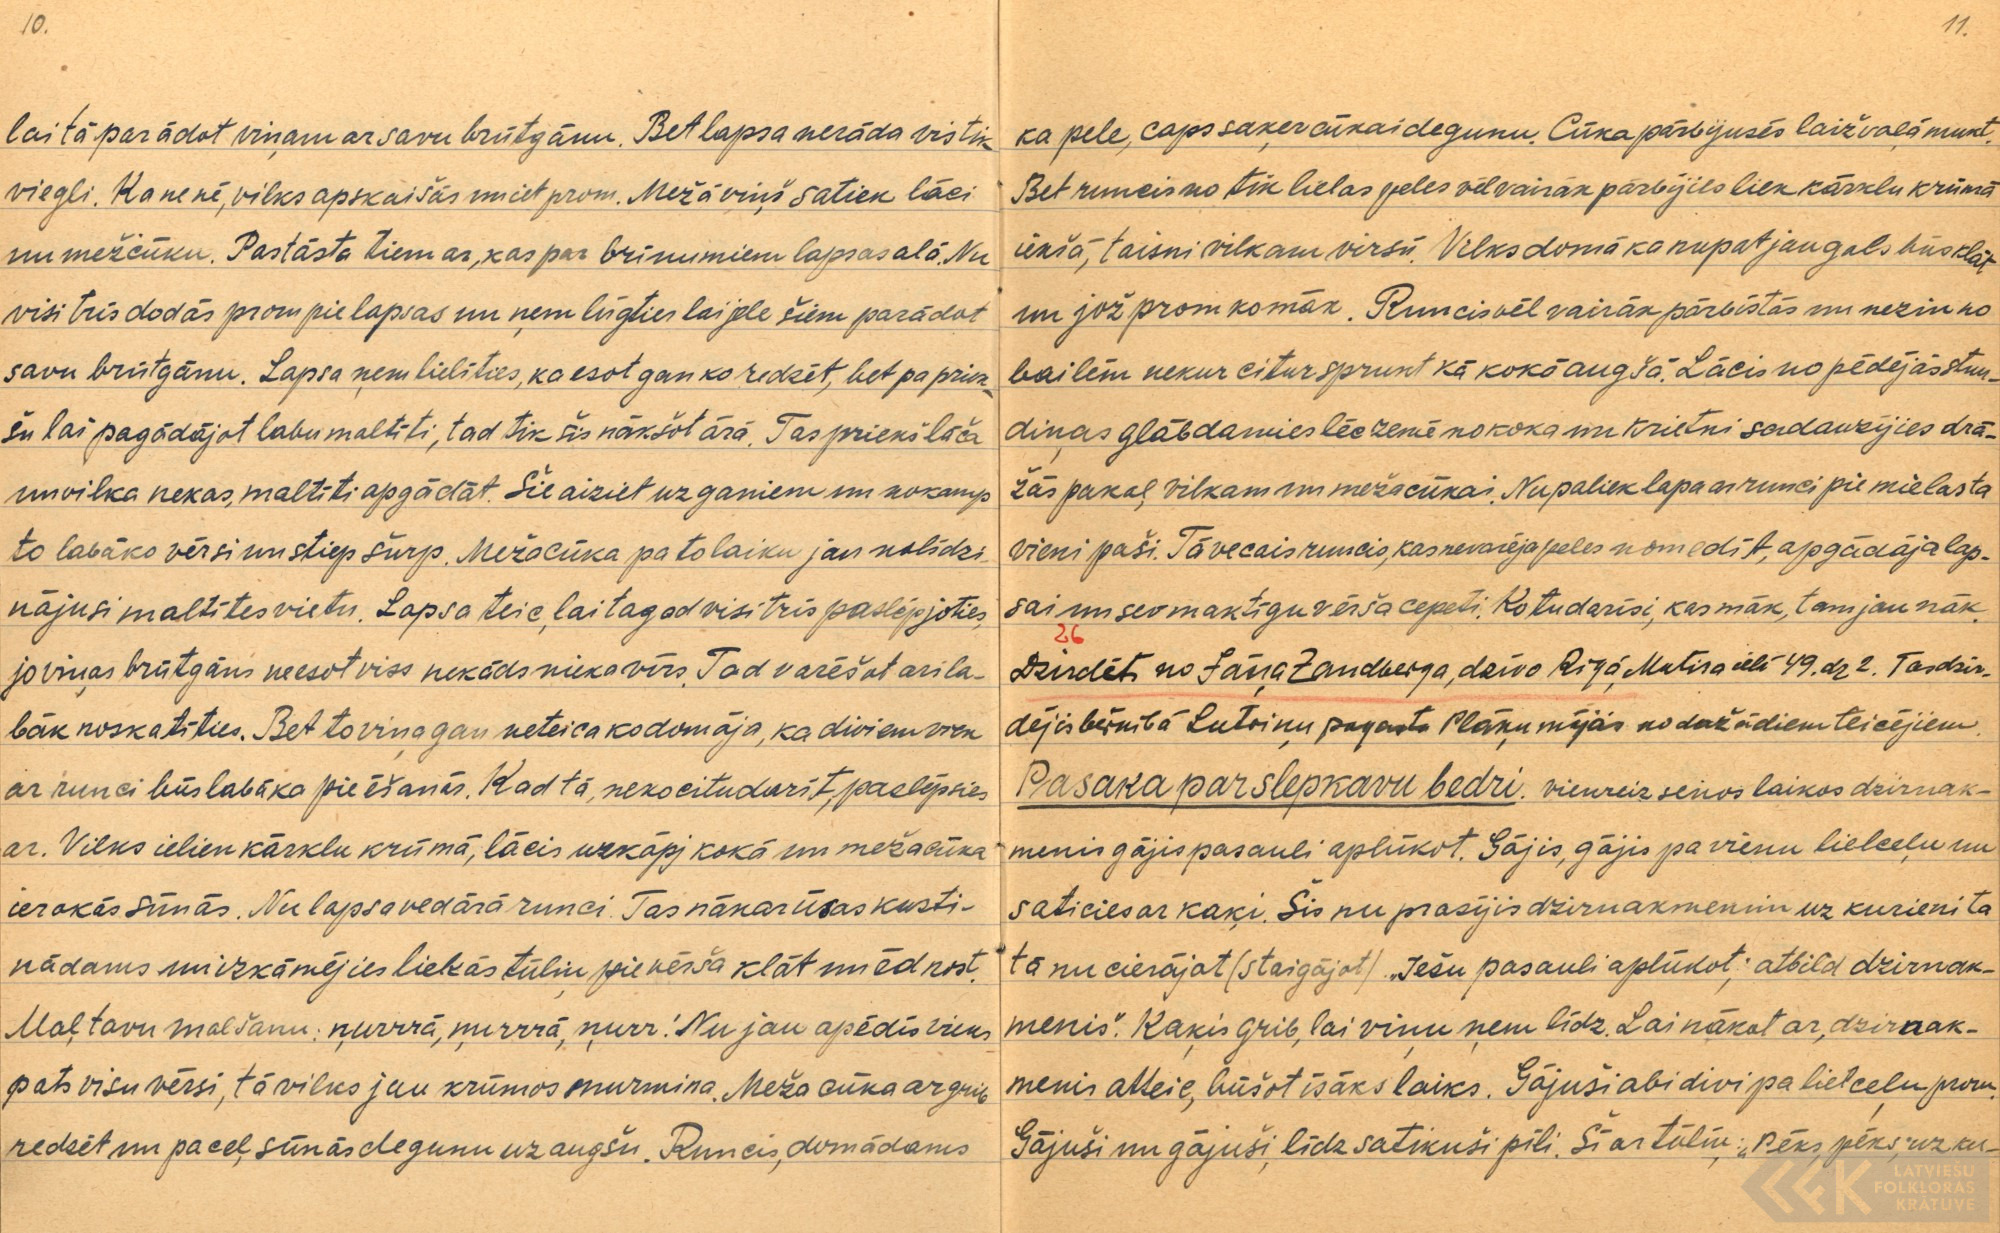 10.
lai tā parādot viņam ar savu brūtgānu. Bet lapsa nerāda vis tik
viegli. Ka ne nē, vilks apskaišās un iet prom. Mežā viņš satiek lāci
un mežcūku. Pastāsta tiem ar, kas par brīnumiem lapsas alā. Nu
visi trīs dodās prom pie lapsas un ņem lūgties lai jele šiem parādot
savu brūtgānu. Lapsa ņem lielīties, ka esot gan ko redzēt, bet pa priek-
šu lai pagādājot labu maltīti, tad tik šis nākšot ārā. Tas priekš lāča
un vilka nekas, maltīti apgādāt. Šie aiziet uz ganiem un nokamp
to labāko vērsi un stiep šurp. Mežacūka pa to laiku jau nolīdzi-
nājusi maltītes vietu. Lapsa teic, lai tagad visi trīs paslēpjoties,
jo viņas brūtgāns neesot viss nekāds nieka vīrs. Tad varēšot arī la-
bāk noskatīties. Bet to viņa gan neteica ko domāja, ka diviem vien
ar runci būs labāka pieēšanās. Kad tā, neko citu darīt, paslēpsies
ar. Vilks ielien kārklu krūmā, lācis uzkāpj kokā un mežacūka
ierokās sūnās. Nu lapsa ved ārā runci. Tas nāk ar ūsas kusti-
nādams un izkāmējies liekās tūliņ pie vērša klāt un ēd nost.
Maļ tavu malšanu: ņurrrā, ņurrrā, ņurr! Nu jau apēdīs viens
pats visu vērsi, tā vilks jau krūmos murmina. Meža cūka ar grib
redzēt un paceļ sūnās degunu uz augšu. Runcis, domādams
11.
ka pele, caps saķer cūkai degunu. Cūka pārbijusēs laiž vaļā mukt.
Bet runcis no tik lielas peles vēl vairāk pārbijies liek kārklu krūmā
iekšā, taisni vilkam virsū. Vilks domā ka nupat jau gals būs klāt
un jož prom ko māk. Runcis vēl vairāk pārbīstās un nezin no
bailēm nekur citur sprukt kā kokā augšā. Lācis no pēdējās stun-
diņas glābdamies lēc zemē no koka un krietni sadauzījies drā-
žās pakaļ vilkam un mežacūkai. Nu paliek lapsa ar runci pie mielasta
vieni paši. Tā vecais runcis, kas nevarēja peles nomedīt, apgādāja lap-
sai un sev maktīgu vērša cepeti. Ko tu darīsi, kas māk, tam jau nāk.
26
Dzirdēts no Jāņa Zandberga, dzīvo Rīgā, Matīsa ielā 49. dz 2. Tas dzir-
dējis bērnībā Lutriņu pagasta Plāņu mājās no dažādiem teicējiem.
Pasaka par slepkavu bedri. Vienreiz senos laikos dzirnak-
menis gājis pasauli aplūkot. Gājis, gājis pa vienu lielceļu un
saticies ar kaķi. Šis nu prasījis dzirnakmenim uz kurieni ta
tā nu cierājot (staigājot) „Iešu pasauli aplūkot," atbild dzirnak-
menis". Kaķis grib, lai viņu ņem līdz. Lai nākot ar, dzirnak-
menis atteic, būšot īsāks laiks. Gājuši abi divi pa lielceļu prom.
Gājuši un gājuši, līdz satikuši pīli. Šī ar tūliņ: „Pēks, pēks, uz ku-
LATVIEŠU
FOLKLORAS
KRĀTUVE